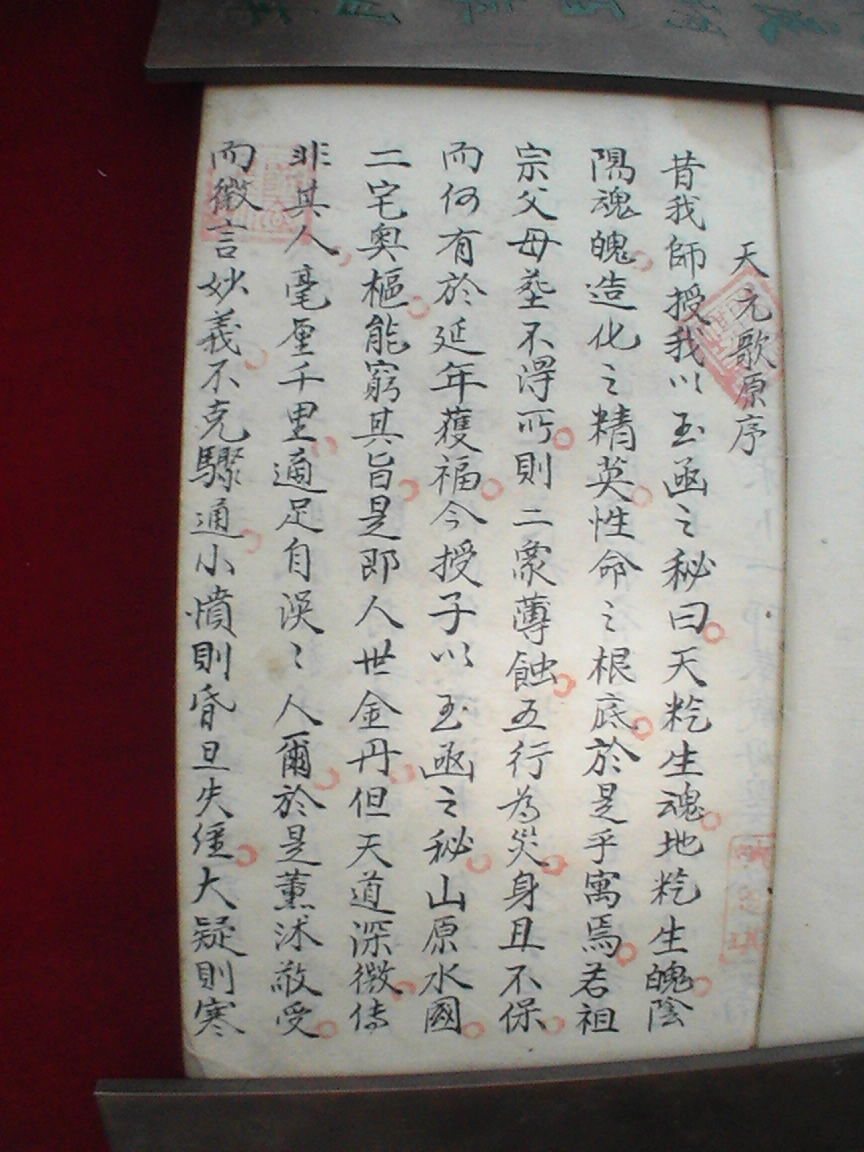 天元歌原序
昔我師授我以玉函之秘曰天䊠生魂地䊠生魄陰
陽魂魄造化之精英性命之根底於是乎寓焉若祖
宗父母塟不得所則二象薄蝕五行為災身且不保
而何有於延年獲福今授子以玉函之秘山原水國
二宅奧樞能窮其旨是即人世金丹但天道深微傳
非其人毫厘千里適足自誤〻人爾於是薰沐敬受
而微言妙義不克驟通小憤則昏旦失經大疑則寒